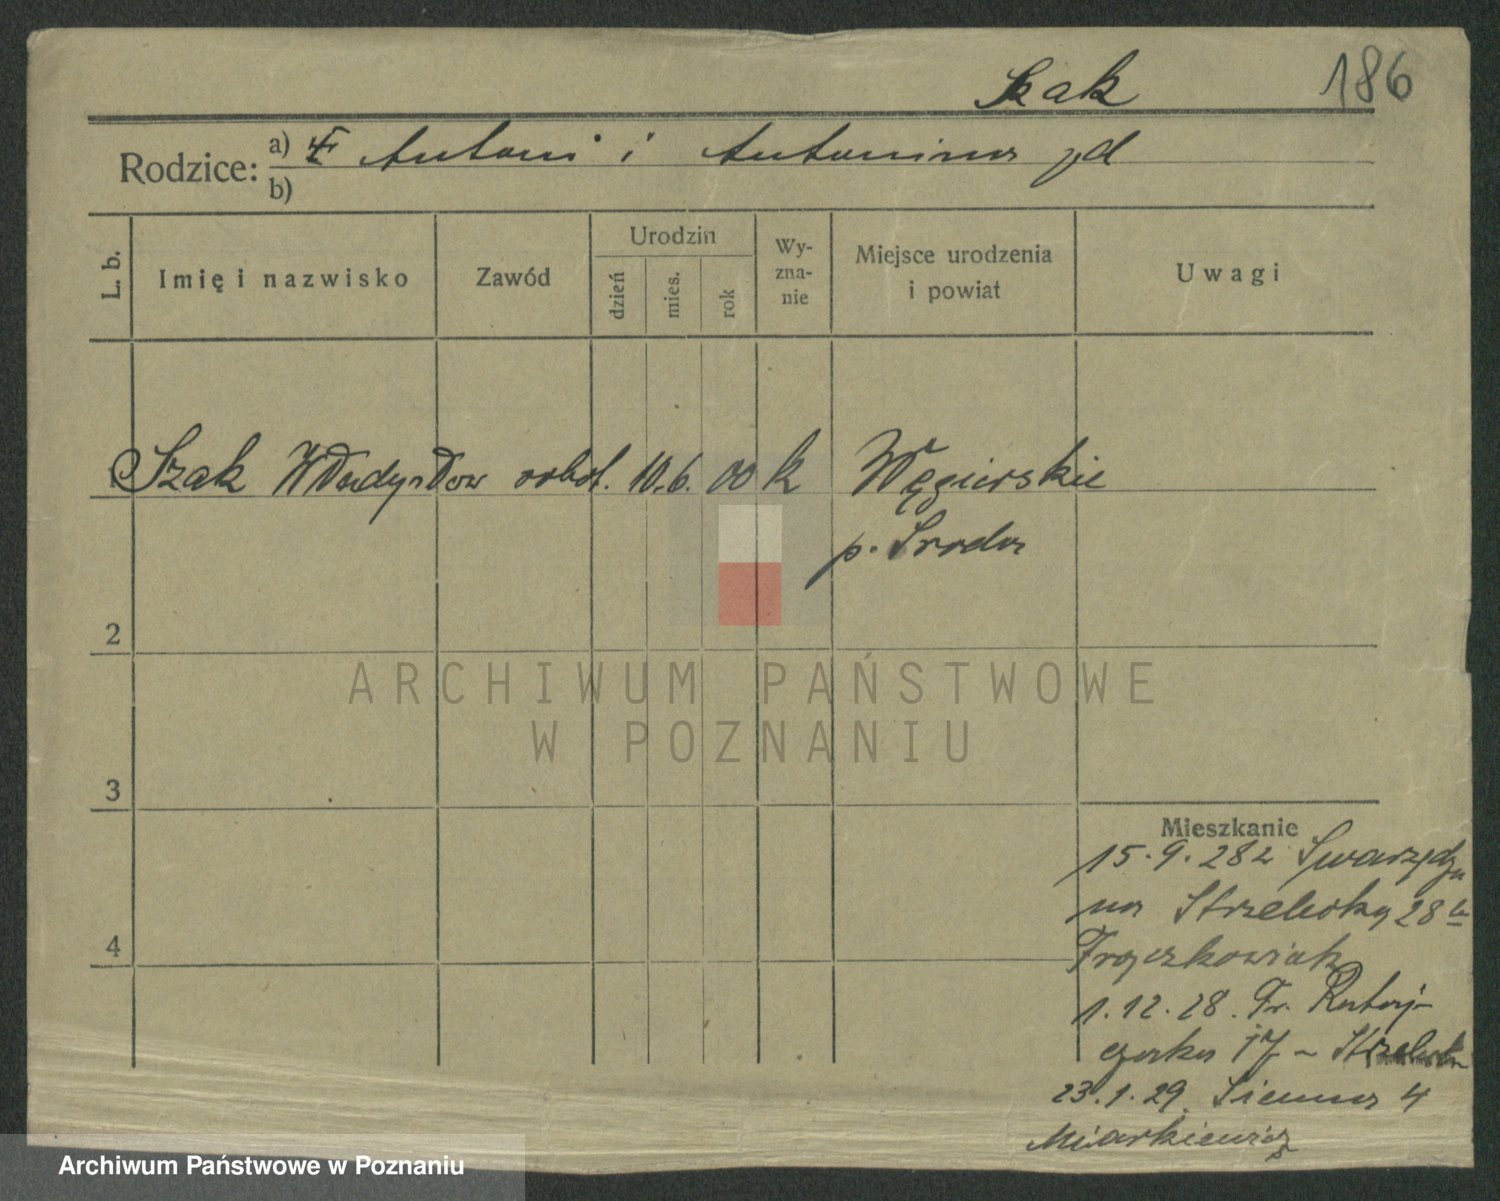 Szak 186
Rodzice: a) Antoni i Antonina zd
b)
L. b.
Imię i nazwisko
Zawód
Urodzin
dzień
mies.
rok
Wy-
zna-
nie
Miejsce urodzenia
i powiat
Uwagi
Szak Władysław robot. 10. 6. 00 k Węgierskie
p. Sroda
2
3
4
Mieszkanie
15.9.28 z Swarzędza
na Strzelecką 28
Frąckowiak
1.12.28. Fr. Rataj-
czaka 17 –
23.1.29. Sienna 4
Miarkiewicz
ARCHIWUM PAŃSTWOWE
W POZNANIU
Archiwum Państwowe w Poznaniu